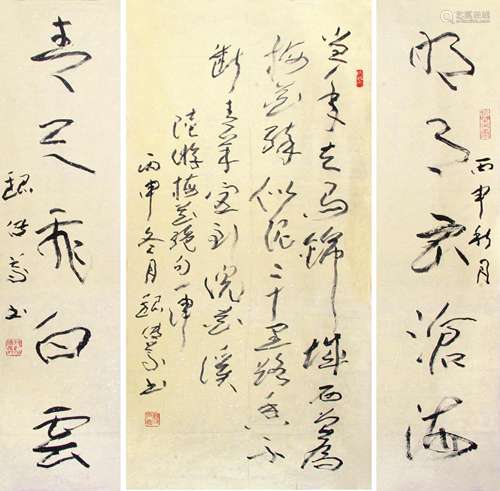 明月滄海
丙申秋月
當年走馬錦城西曾為
梅花醉似泥二十里路香不
斷青羊宮到浣花溪
陸游梅花絕句一律
丙申冬月魏傳義書
青天飛白雲
魏傳義書